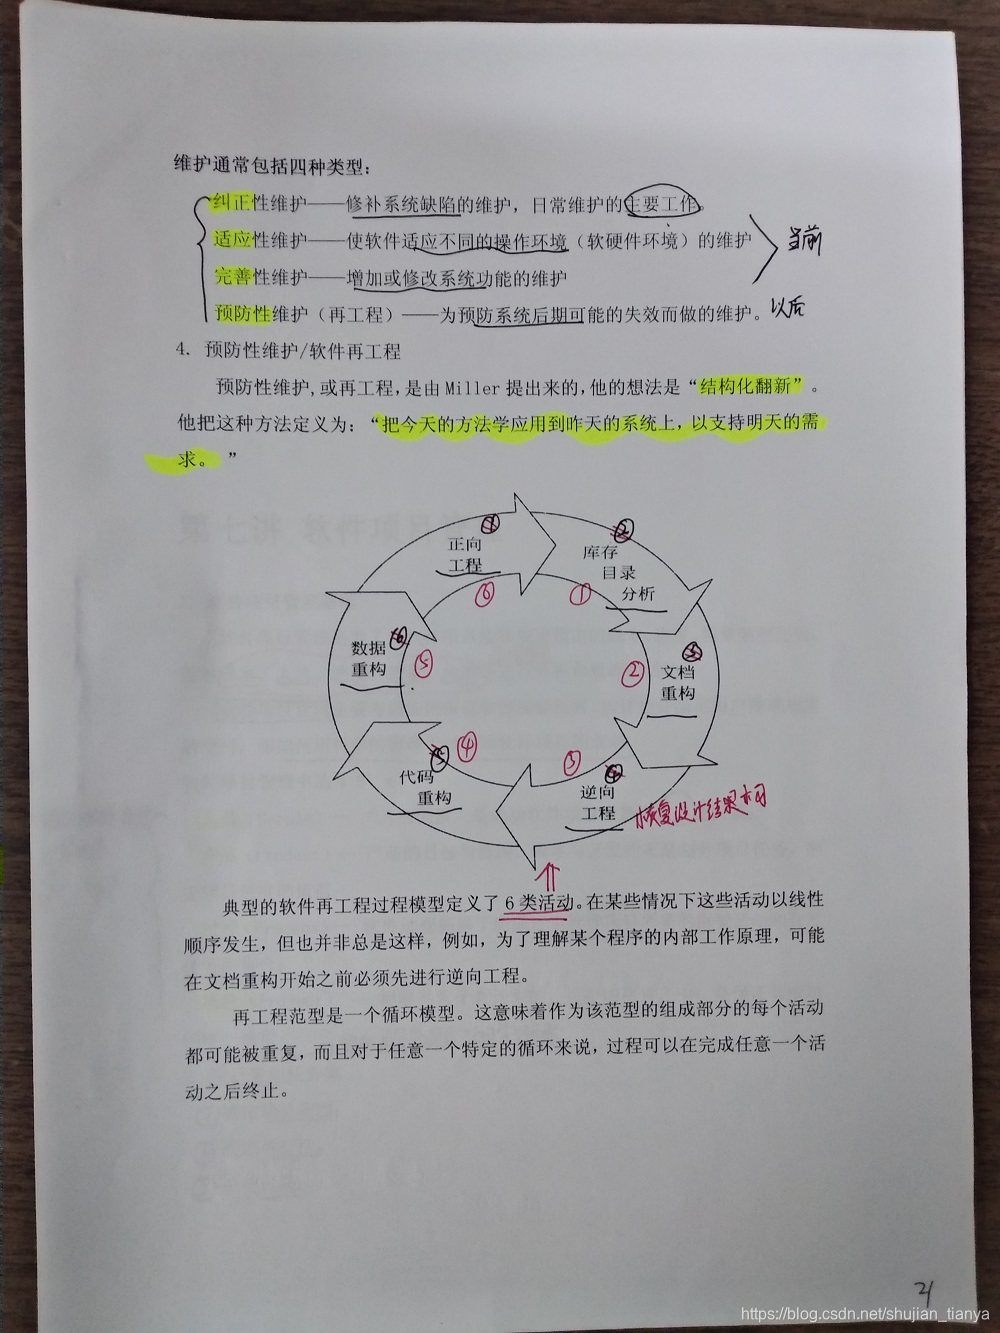 维护通常包括四种类型：
纠正性维护——修补系统缺陷的维护，日常维护的主要工作。
适应性维护——使软件适应不同的操作环境（软硬件环境）的维护
当前
完善性维护——增加或修改系统功能的维护
预防性维护（再工程）——为预防系统后期可能的失效而做的维护。
以后
4. 预防性维护/软件再工程
预防性维护,或再工程,是由Miller提出来的,他的想法是“结构化翻新”。
他把这种方法定义为：“把今天的方法学应用到昨天的系统上，以支持明天的需
求。”
正向
工程
⑥
库存
目录
分析
①
文档
重构
②
逆向
工程
③
恢复设计结果
代码
重构
④
数据
重构
⑤
典型的软件再工程过程模型定义了6类活动。在某些情况下这些活动以线性
顺序发生，但也并非总是这样，例如，为了理解某个程序的内部工作原理，可能
在文档重构开始之前必须先进行逆向工程。
再工程范型是一个循环模型。这意味着作为该范型的组成部分的每个活动
都可能被重复，而且对于任意一个特定的循环来说，过程可以在完成任意一个活
动之后终止。
21
https://blog.csdn.net/shujian_tianya